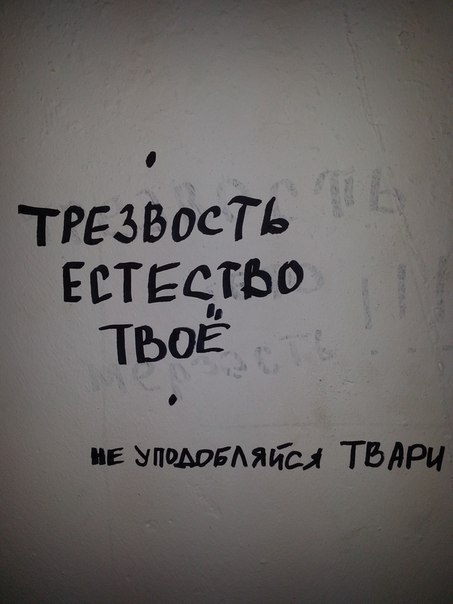 ТРЕЗВОСТЬ
ЕСТЕСТВО
ТВОЁ
НЕ УПОДОБЛЯЙСЯ ТВАРИ